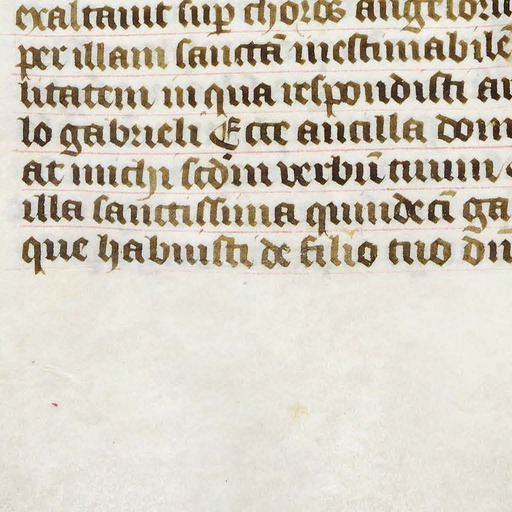 exaltauit sup choros angeloru
per illam sanctā inestimabilē
litatem in qua respondisti an
lo gabrieli Ecce ancilla dom
at michi scdm verbū tuum
illa sanctissima quindecī ga
que habuisti de filio tuo dn̄